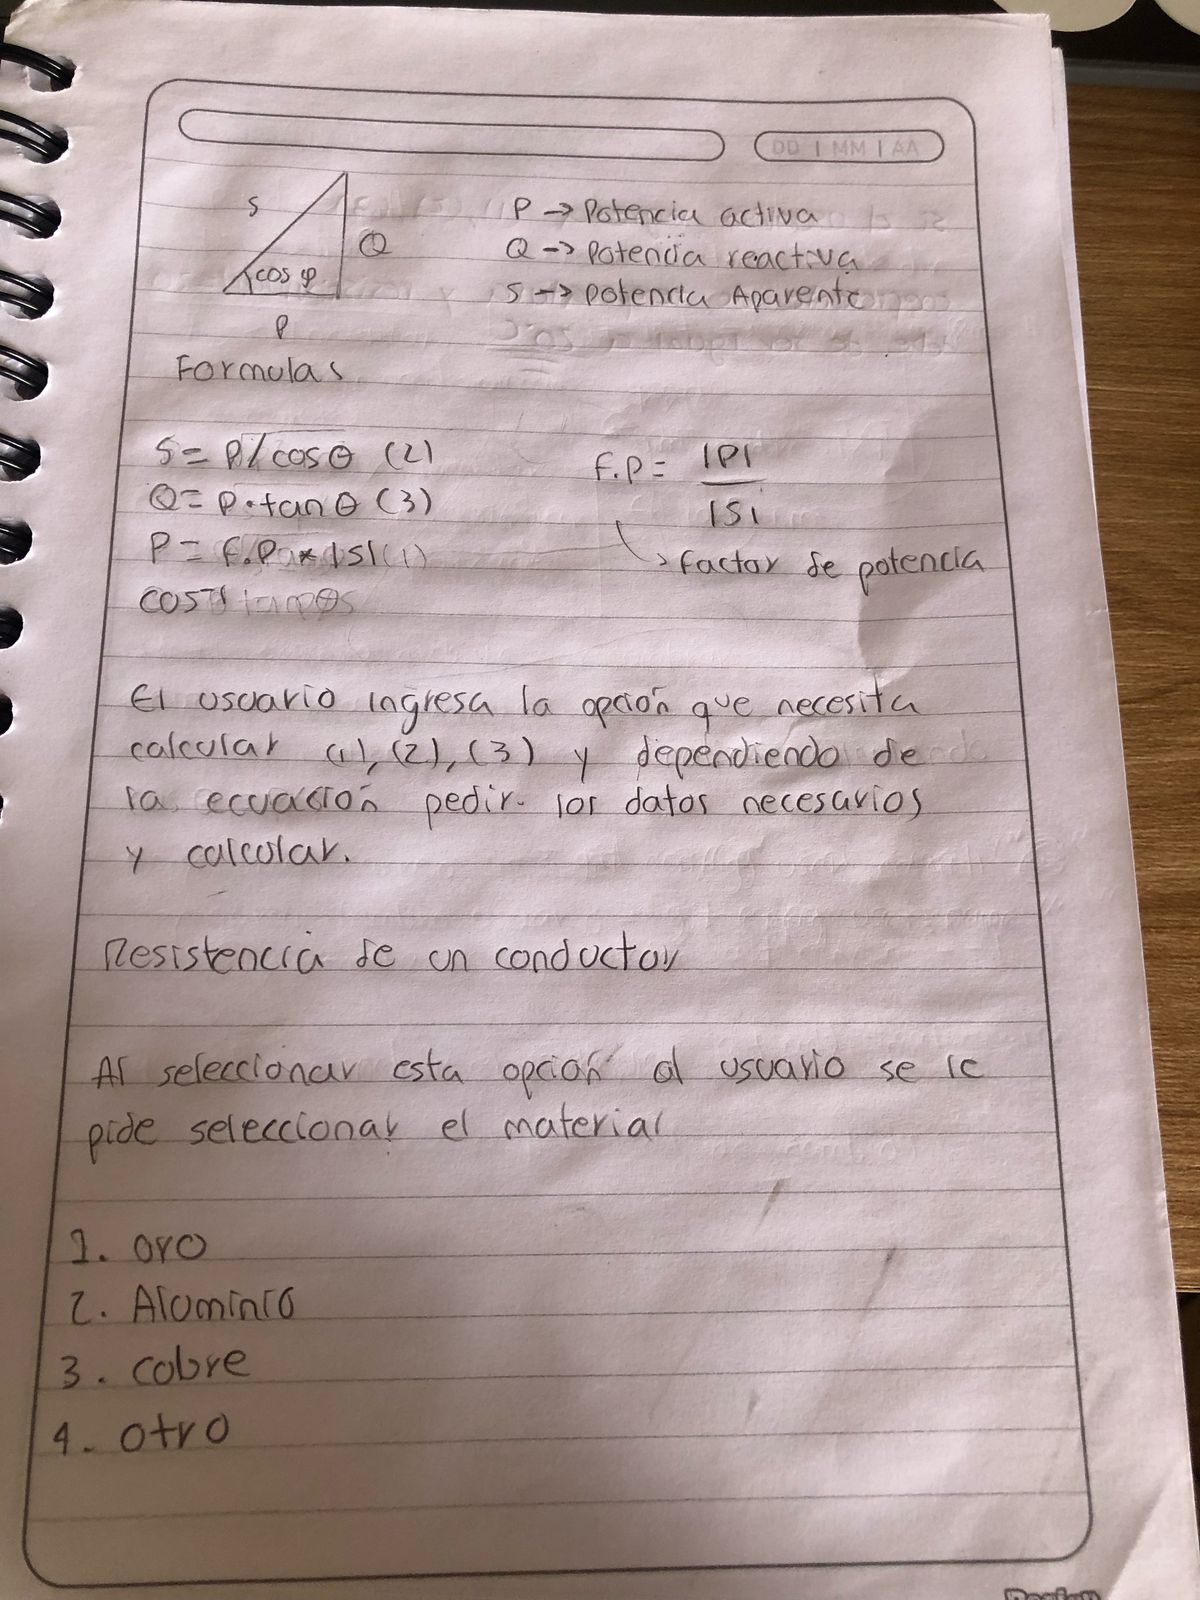 DD | MM | AA
S
Q
cos φ
P
P → Potencia activa
Q → Potencia reactiva
S → Potencia Aparente
Formulas
S = P/cosθ (2)
Q = P·tanθ (3)
P = F.P * |S| (1)
F.P = |P|
|S|
→ factor de potencia
cos
El usuario ingresa la opción que necesita
calcular (1), (2), (3) y dependiendo de
la ecuación pedir los datos necesarios
y calcular.
Resistencia de un conductor
Al seleccionar esta opción al usuario se le
pide seleccionar el material
1. oro
2. Aluminio
3. cobre
4. otro